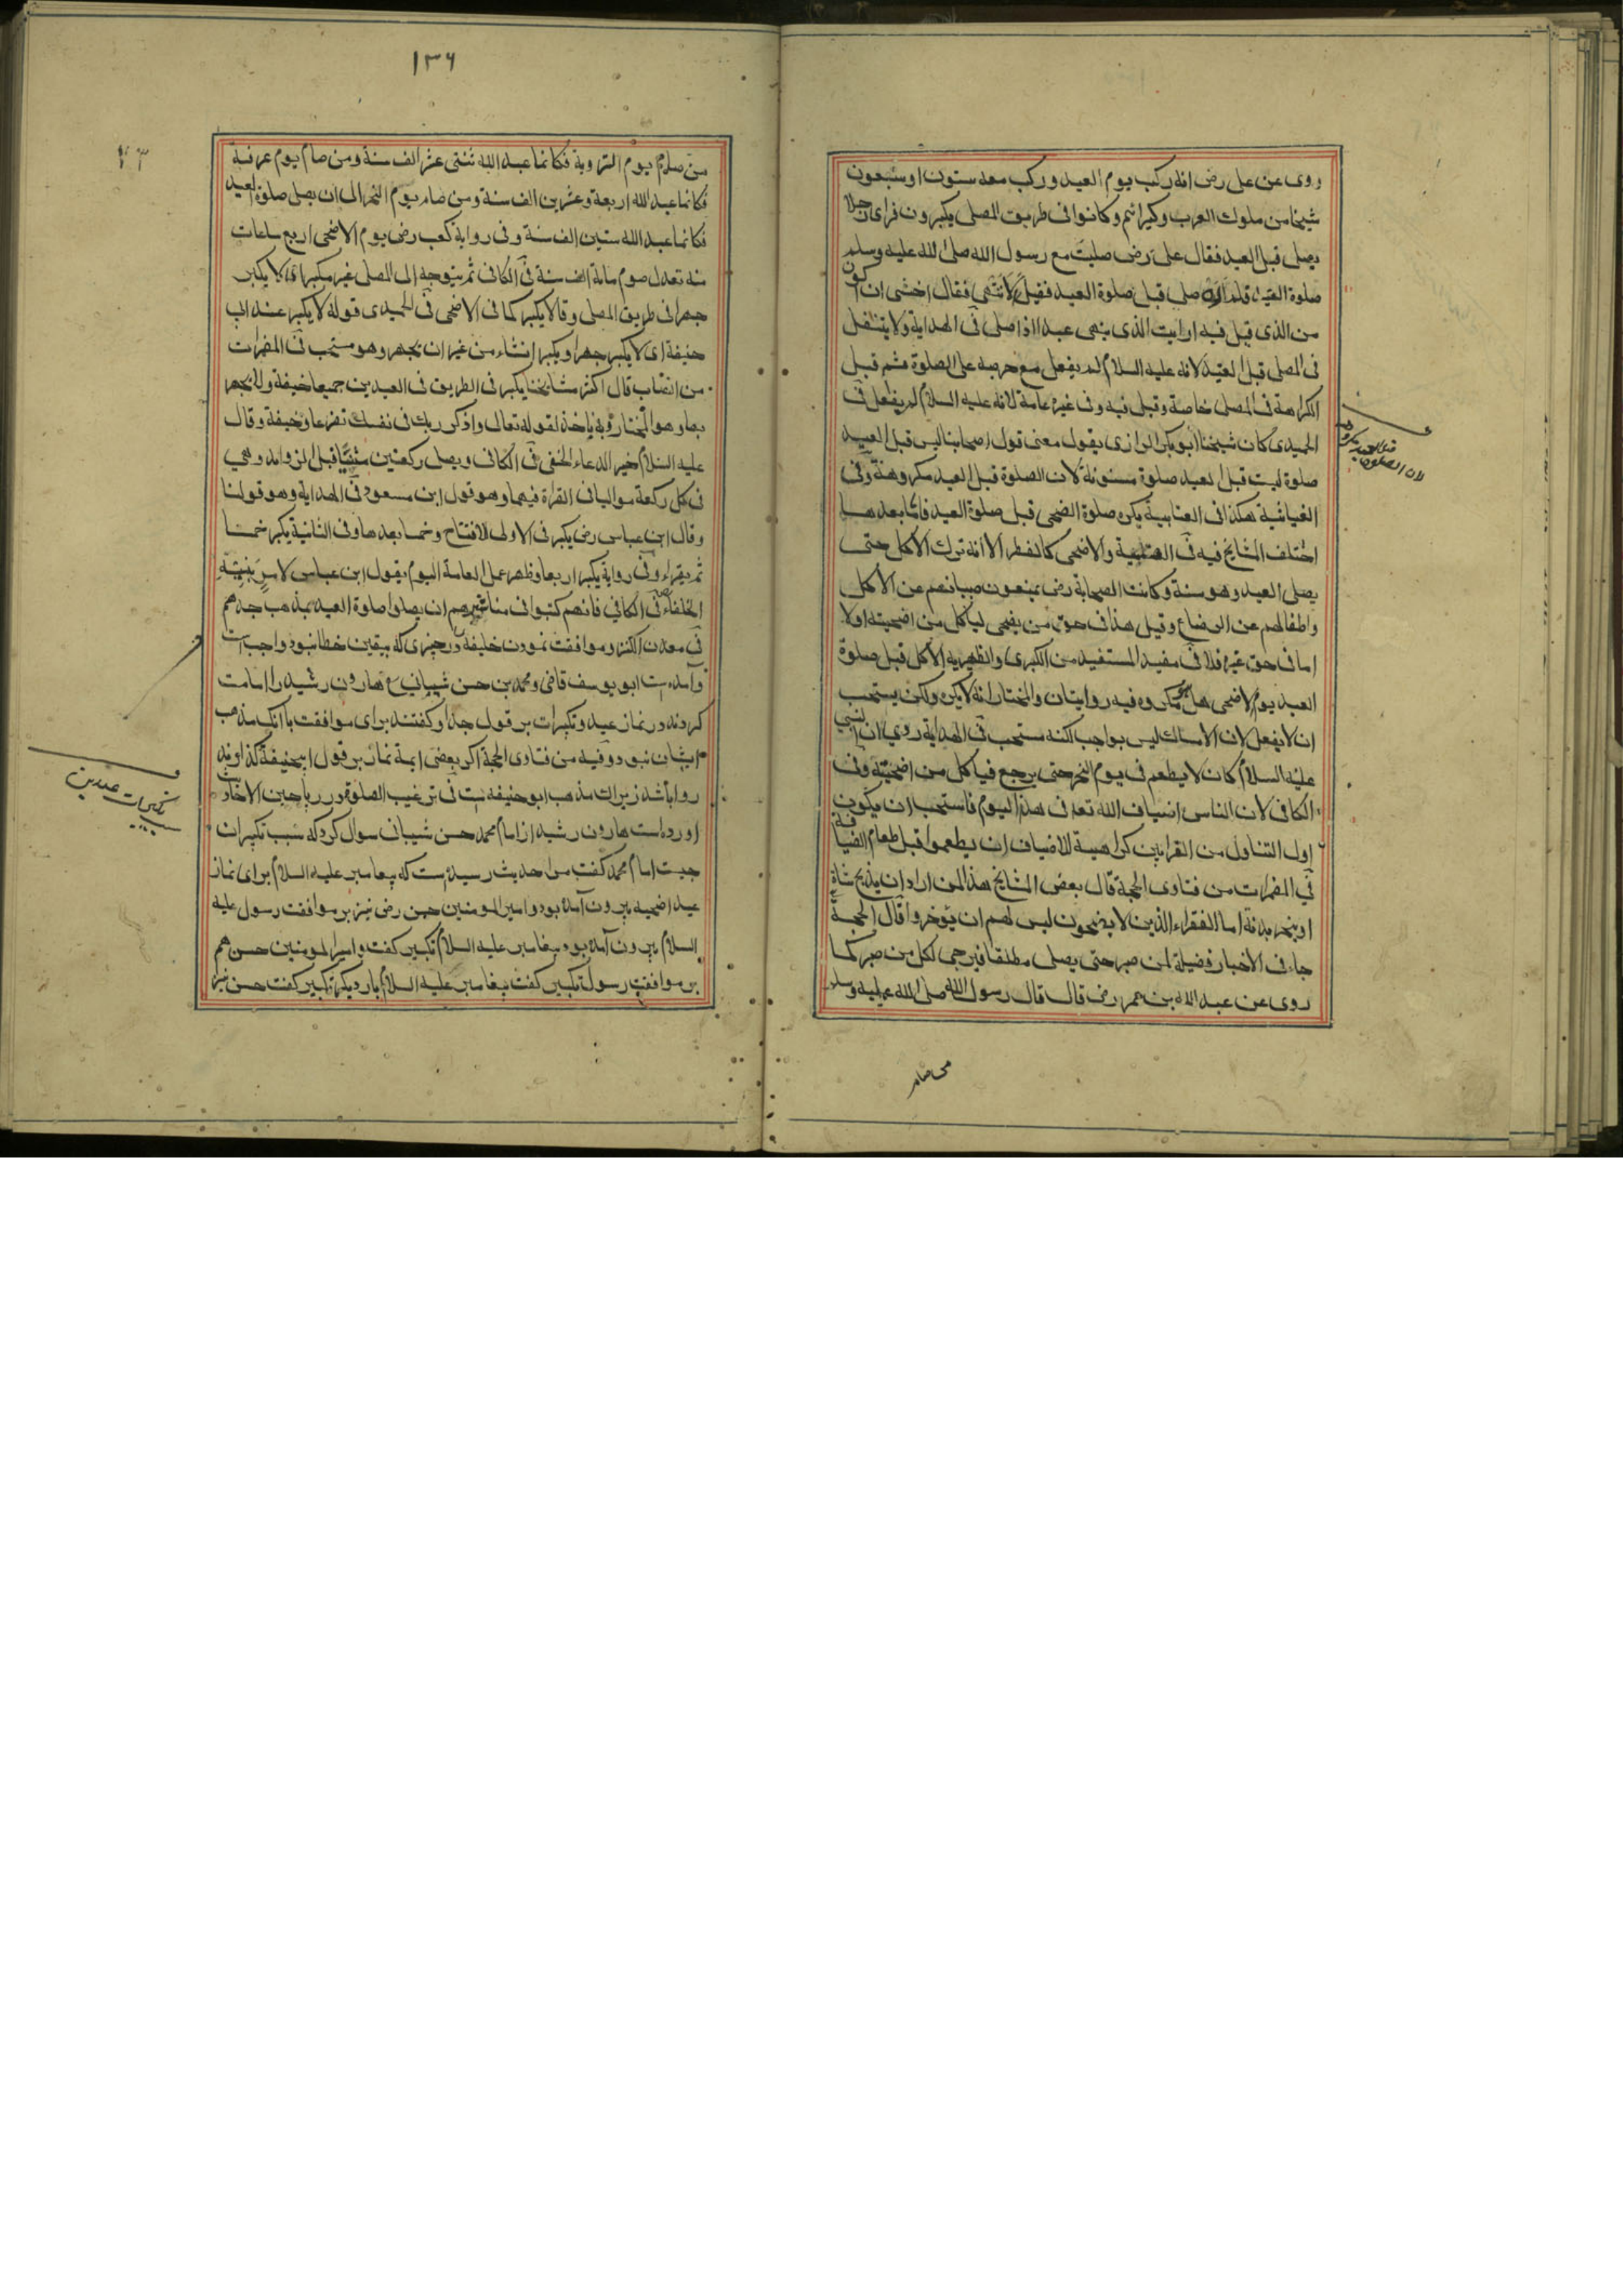 روى عن على رض انه ركب يوم العيد وركب معه ستون او سبعون
شيخا من ملوك العرب وكبرائهم وكانوا فى طريق المصلى يكبرون فراى رجلا
يصلى قبل العيد فقال على رض صليت مع رسول الله صلى الله عليه وسلم
صلوة العيد صلى قبل صلوة العيد فقيل لا تنتهى فقال اخشى ان اكون
من الذى قيل فيه ارايت الذى ينهى عبدا اذا صلى فى الهداية ولا يتنفل
فى المصلى قبل العيد لانه عليه السلام لم يفعل مع حرصه على الصلوة ثم قيل
الكراهة فى المصلى خاصة وقيل فيه وفى غيره عامة لانه عليه السلام لم يفعل فى
الحميدى كان شيخنا ابو بكر الرازى يقول معنى قول اصحابنا ليس قبل العيد
صلوة ليست قبل العيد صلوة مسنونة لان الصلوة قبل العيد مكروهة وفى
الغياثية هكذا فى العتابية يكره صلوة الضحى قبل صلوة العيد فاما بعدها
اختلف المشايخ فيه فى والاضحى كالفطر الا انه ترك الاكل حتى
يصلى العيد وهو سنة وكانت الصحابة رض يمنعون صبيانهم عن الاكل
واطفالهم عن الرضاع وقيل هذا فى حق من يضحى لياكل من اضحيته اولا
اما فى حق غيره فلا فى مفيد المستفيد من الكبرى والظهيرية الاكل قبل صلوة
العيد يوم الاضحى هل يكره فيه روايتان والمختار انه لا يكره ولكن يستحب
ان لا يفعل لان الامساك ليس بواجب لكنه مستحب فى الهداية روى ان النبى
عليه السلام كان لا يطعم فى يوم النحر حتى يرجع فياكل من اضحيته وفى
الكافى لان الناس اضياف الله تعه فى هذا اليوم فاستحب ان يكون
اول التناول من القرابين كراهية للاضياف ان يطعموا قبل طعام الضيافة
فى المضمرات من فتاوى الحجة قال بعض المشايخ هذا لمن اراد ان يذبح شاة
او ينحر بدنة اما الفقراء الذين لا يضحون ليس لهم ان يؤخروا قال الحجة
جاء فى الاخبار فضيلة لمن صبر حتى يصلى مطلقا فيرجى لكل من صبر كما
روى عن عبد الله بن عمر رض قال قال رسول الله صلى الله عليه وسلم
لان الصلوة قبل العيد مكروهة
من صام
١٣٦
٢٣
من صام يوم التروية فكانما عبد الله ثنتى عشر الف سنة ومن صام يوم عرفة
فكانما عبد الله اربعة وعشرين الف سنة ومن صام يوم النحر الى ان يصلى صلوة العيد
فكانما عبد الله ستين الف سنة وفى رواية كعب رض يوم الاضحى اربع ساعات
منه تعدل صوم مائة الف سنة فى الكافى ثم يتوجه الى المصلى غير مكبر اى لا يكبر
جهرا فى طريق المصلى وقالا يكبر كما فى الاضحى فى الحميدى قوله لا يكبر عند ابى
حنيفة اى لا يكبر جهرا ويكبر انشاء من غير ان يجهر وهو مستحب فى المضمرات
من النصاب قال اكثر مشايخنا يكبر فى الطريق فى العيدين جميعا خيفة ولا يجهر
بها وهو المختار وبه ناخذ لقوله تعالى واذكر ربك فى نفسك تضرعا وخيفة وقال
عليه السلام خير الدعاء الخفى فى الكافى ويصلى ركعتين مثنيا قبل الزوايد وهى
فى كل ركعة مواليا فى القراة فيهما وهو قول ابن مسعود فى الهداية وهو قولنا
وقال ابن عباس رض يكبر فى الاولى للافتتاح وخمسا بعدها وفى الثانية يكبر خمسا
ثم يقراء وفى رواية يكبر اربعا وظهر عمل العامة اليوم بقول ابن عباس لامر بنيه
الخلفاء فى الكافى فانهم كتبوا فى مناشيرهم ان يصلوا صلوة العيد بمذهب جدهم
فى معدن الكنز وموافقت نمودن خليفه در چيزى كه بيقين خطا نبود واجب است
وآمده است ابو يوسف قاضى ومحمد بن حسن شيبانى هارون رشيد را امامت
كردند در نماز عيد وتكبيرات بر قول جد او گفتند براى موافقت با آنك مذهب
ايشان نبود وفيه من فتاوى الحجة اگر بعضى ايمه نماز بر قول ابيحنيفة گذارند
روا باشد زيراك مذهب ابو حنيفه است فى ترغيب الصلوة در رياحين الاخبار
اورده است هارون رشيد از امام محمد حسن شيبانى سوال كرد كه سبب تكبيرات
چيست امام محمد گفت مرا حديث رسيده است كه پيغامبر عليه السلام براى نماز
عيد اضحيه بيرون آمده بود وامير المومنين حسن رض نيز بر موافقت رسول عليه
السلام بيرون آمده بود پيغامبر عليه السلام تكبير گفت وامير المومنين حسن هم
بر موافقت رسول تكبير گفت پيغامبر عليه السلام بار ديگر تكبير گفت حسن نيز
سبب تكبيرات عيدين